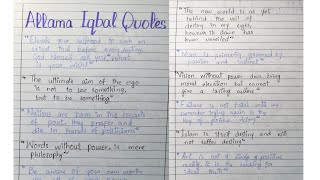 Allama Iqbal Quotes
"Elevate your selfhood to such an
extent that before every destiny,
God Himself ask you, What is
your wish"
"The ultimate aim of the ego
is not to see something,
but to be something"
"Nations are born in the hearts
of poet, they prosper and
die in hands of politicians"
"Words without power, is mere
philosophy"
"Be aware of your own worth
"The new world is as yet
behind the veil of
destiny in my eyes,
however its dawn has
been unveiled"
"Man is primarily governed by
passion and instinct"
"Vision without power does bring
moral elevation but cannot
give a lasting culture"
"Failure is not fatal until we
surrender trying again is the
key of glorious victory"
"Islam is itself destiny and will
not suffer destiny"
"Art is not a
reality, it is the
ideal truth"